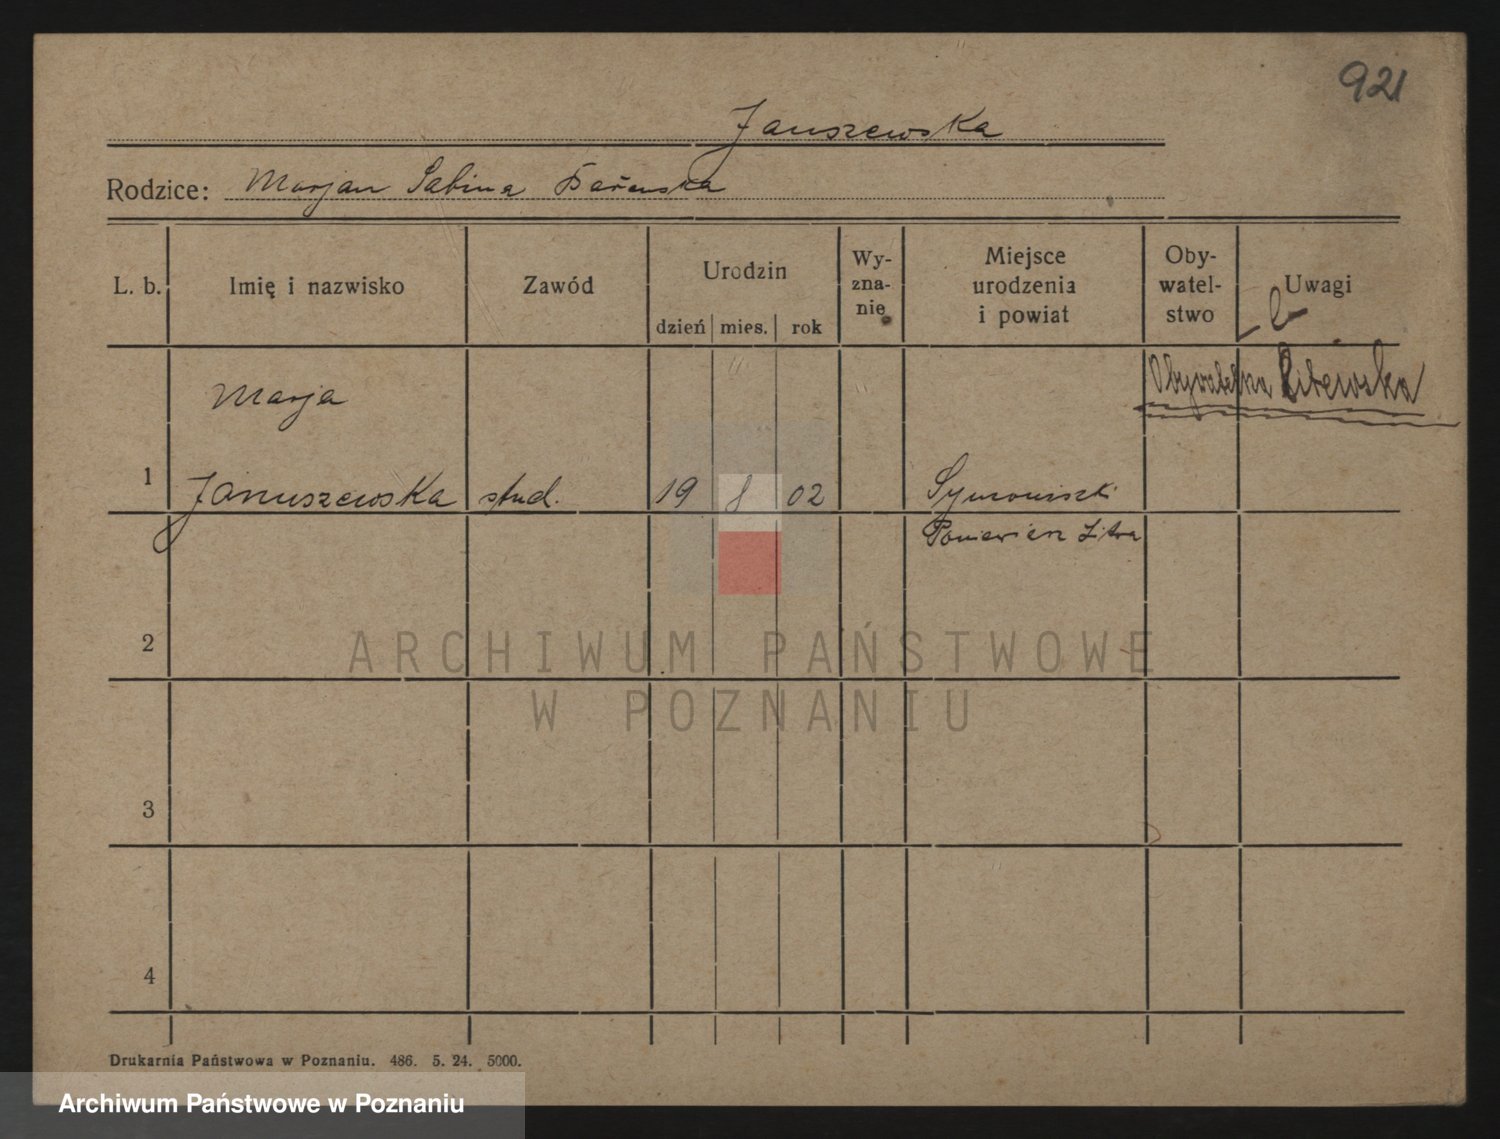 921
Januszewska
Rodzice: Marjan Sabina
L. b. Imię i nazwisko Zawód Urodzin dzień mies. rok Wy-zna-nie Miejsce urodzenia i powiat Oby-watel-stwo Uwagi
Obywatelka Litewska
Marja
1 Januszewska stud. 19 8 02
Poniewież Litwa
2
3
4
ARCHIWUM PAŃSTWOWE
W POZNANIU
Drukarnia Państwowa w Poznaniu. 486. 5. 24. 5000.
Archiwum Państwowe w Poznaniu